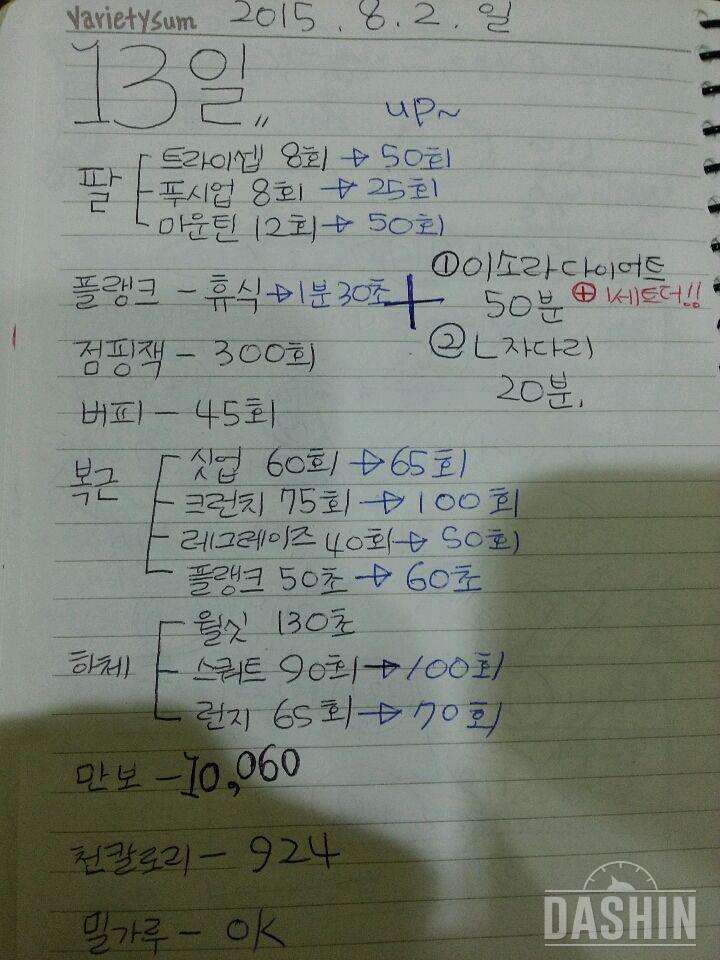 Varietysum 2015.8.2.일
13일,,
up~
팔
트라이셉 8회 → 50회
푸시업 8회 → 25회
마운틴 12회 → 50회
플랭크 - 휴식 → 1분30초 +
① 이소라다이어트
50분 ⊕ 1세트더!!
② L자다리
20분.
점핑잭 - 300회
버피 - 45회
복근
싯업 60회 → 65회
크런치 75회 → 100회
레그레이즈 40회 → 50회
플랭크 50초 → 60초
하체
월싯 130초
스쿼트 90회 → 100회
런지 65회 → 70회
만보 - 10,060
천칼로리 - 924
밀가루 - OK
DASHIN